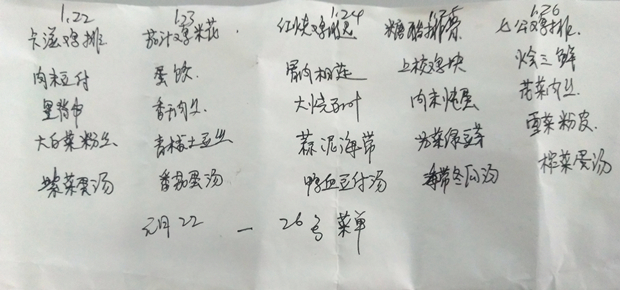 1.22
卡滋鸡排
肉末豆付
里脊巾
大白菜粉丝
紫菜蛋汤
1.23
茄汁鸡米花
蛋饺
香肉丝
青椒土豆丝
番茄蛋汤
1.24
红烧鸡腿
大烧百叶
蒜泥海带
鸭血豆付汤
1.25
糖醋排骨
上校鸡块
肉末炖蛋
海带冬瓜汤
1.26
大公鸡排
烩三鲜
花菜肉丝
雪菜粉皮
榨菜蛋汤
元月22 — 26号菜单